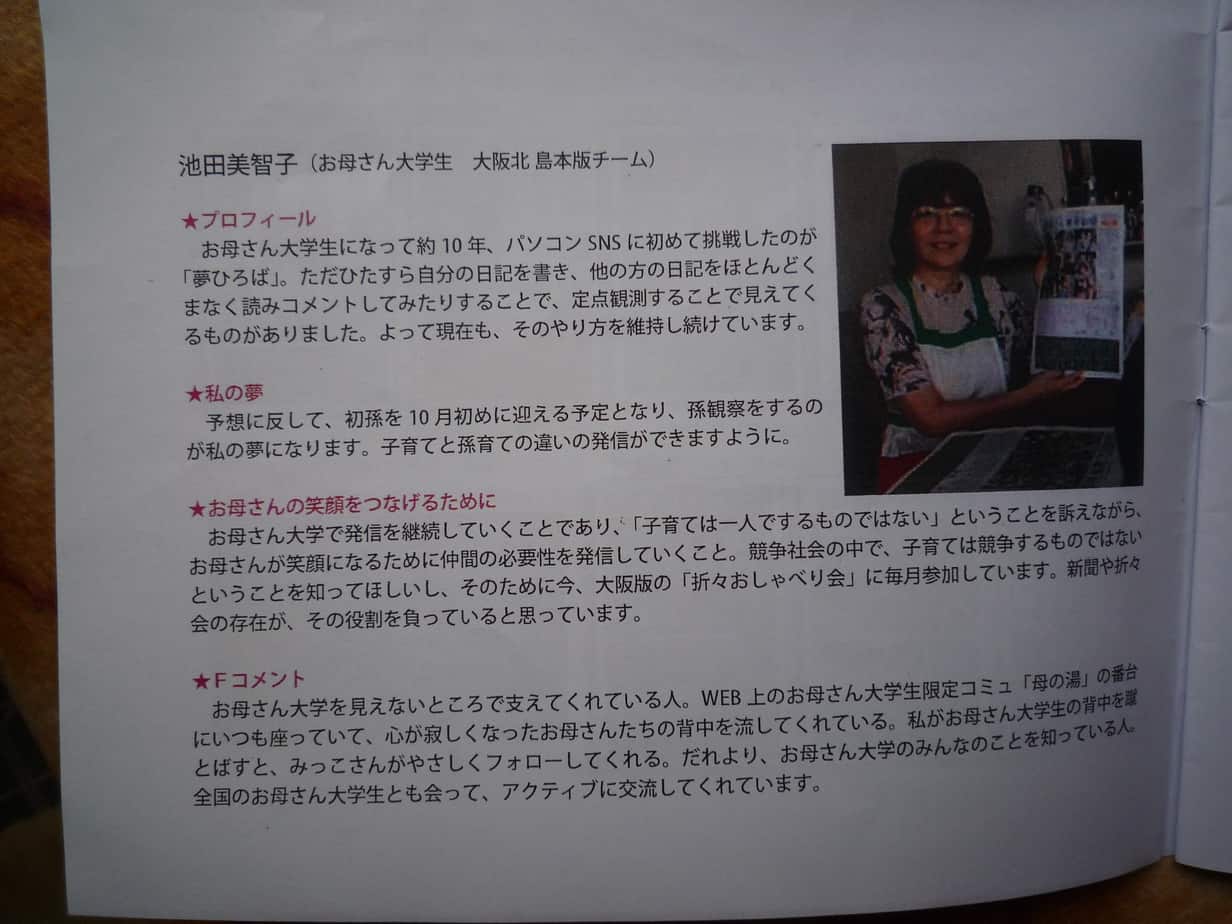 池田美智子（お母さん大学生　大阪北 島本版チーム）
★プロフィール
お母さん大学生になって約 10 年、パソコン SNS に初めて挑戦したのが
「夢ひろば」。ただひたすら自分の日記を書き、他の方の日記をほとんどく
まなく読みコメントしてみたりすることで、定点観測することで見えてく
るものがありました。よって現在も、そのやり方を維持し続けています。
★私の夢
予想に反して、初孫を 10 月初めに迎える予定となり、孫観察をするの
が私の夢になります。子育てと孫育ての違いの発信ができますように。
★お母さんの笑顔をつなげるために
お母さん大学で発信を継続していくことであり、「子育ては一人でするものではない」ということを訴えながら、
お母さんが笑顔になるために仲間の必要性を発信していくこと。競争社会の中で、子育ては競争するものではない
ということを知ってほしいし、そのために今、大阪版の「折々おしゃべり会」に毎月参加しています。新聞や折々
会の存在が、その役割を負っていると思っています。
★Ｆコメント
お母さん大学を見えないところで支えてくれている人。WEB 上のお母さん大学生限定コミュ「母の湯」の番台
にいつも座っていて、心が寂しくなったお母さんたちの背中を流してくれている。私がお母さん大学生の背中を蹴
とばすと、みっこさんがやさしくフォローしてくれる。だれより、お母さん大学のみんなのことを知っている人。
全国のお母さん大学生とも会って、アクティブに交流してくれています。